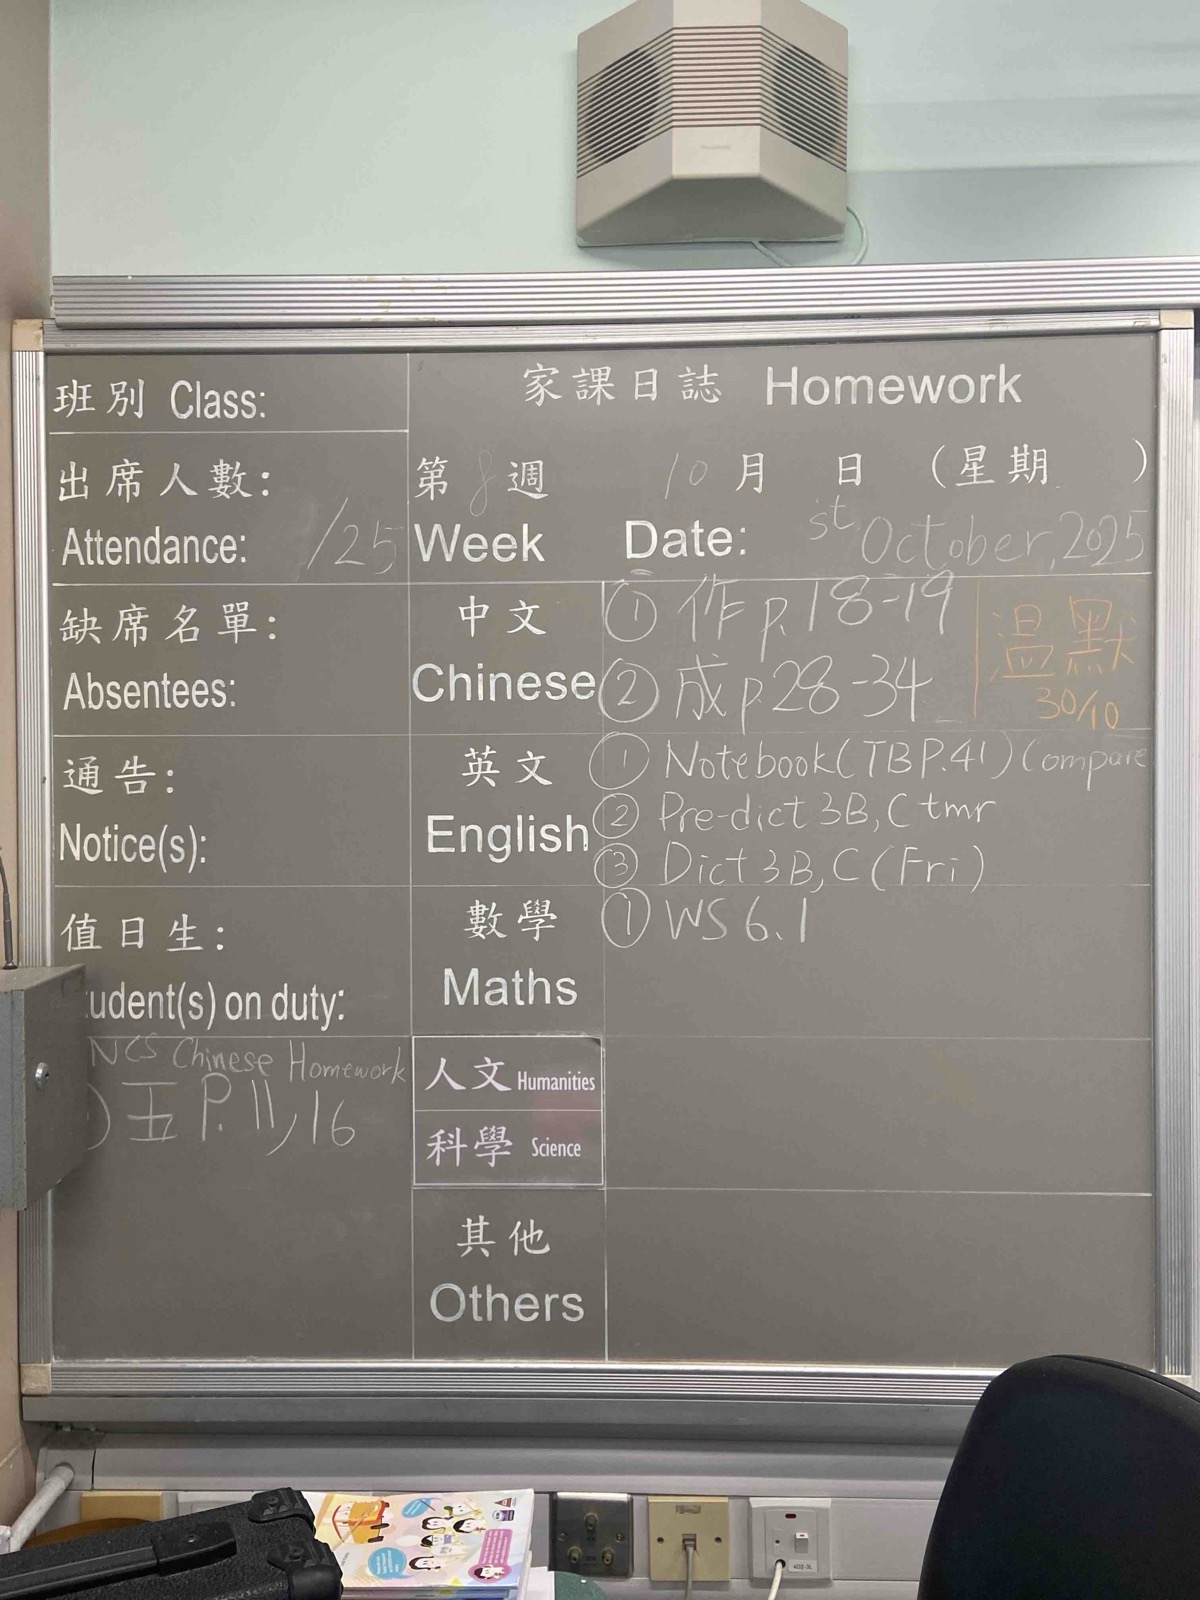 班別 Class:
家課日誌 Homework
出席人數:
Attendance: /25
第 8 週 10 月 日 (星期 )
Week Date: st October, 2025
缺席名單:
Absentees:
中文
Chinese
① 作 p. 18-19
② 成 p 28-34
溫默
30/10
通告:
Notice(s):
英文
English
① Notebook (TB P.41) Compare
② Pre-dict 3B, C tmr
③ Dict 3B, C (Fri)
值日生:
tudent(s) on duty:
數學
Maths
① WS 6.1
NCS Chinese Homework
) 五 P. 11, 16
人文 Humanities
科學 Science
其他
Others